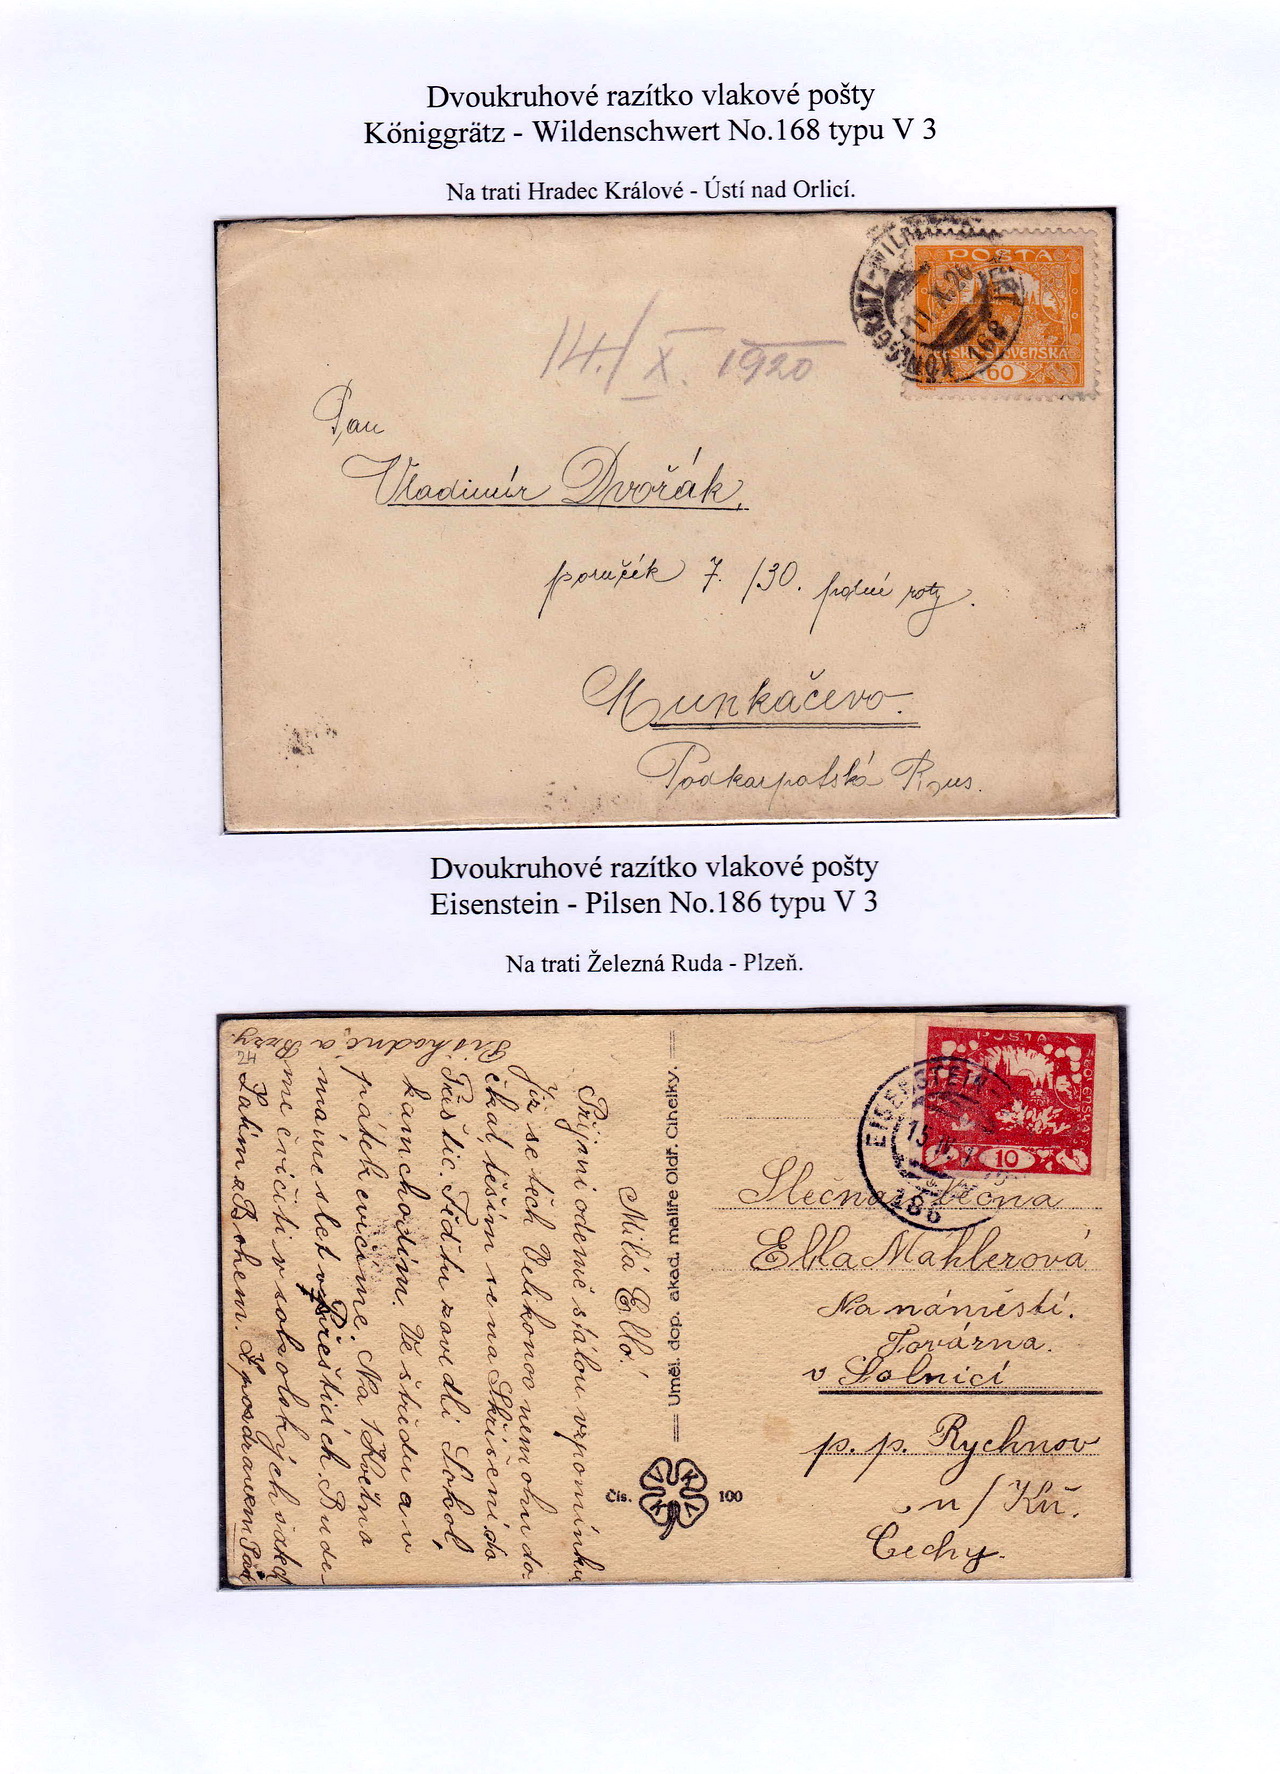 Dvoukruhové razítko vlakové pošty
Königgrätz - Wildenschwert No.168 typu V 3
Na trati Hradec Králové - Ústí nad Orlicí.
POŠTA
ČESKO-SLOVENSKÁ
60
168
14./X. 1920
Pan
Vladimír Dvořák,
poručík 7. /30. polní roty.
Munkačevo.
Podkarpatská Rus.
Dvoukruhové razítko vlakové pošty
Eisenstein - Pilsen No.186 typu V 3
Na trati Železná Ruda - Plzeň.
EISENSTEIN
186
10
Slečna
Ella Mahlerová
Na náměstí.
Továrna.
v Solnici
p. p. Rychnov
n/Kn.
Čechy.
Uměl. dop. akad. malíře Oldř. Cihelky.
Čís. 100
V K K V
Milá Ello!
Přijmi odemě stálou vzpomínku
Již se těch Velikonoc nemohu do-
čkat, těším se na Skříšení do
Přeštic. Teď tu zavedli Sokol,
kam chodím. Ve středu a v
pátek cvičíme. Na 1 Května
máme slet v Přešticích. Bude-
me cvičiti v sokolských šatech